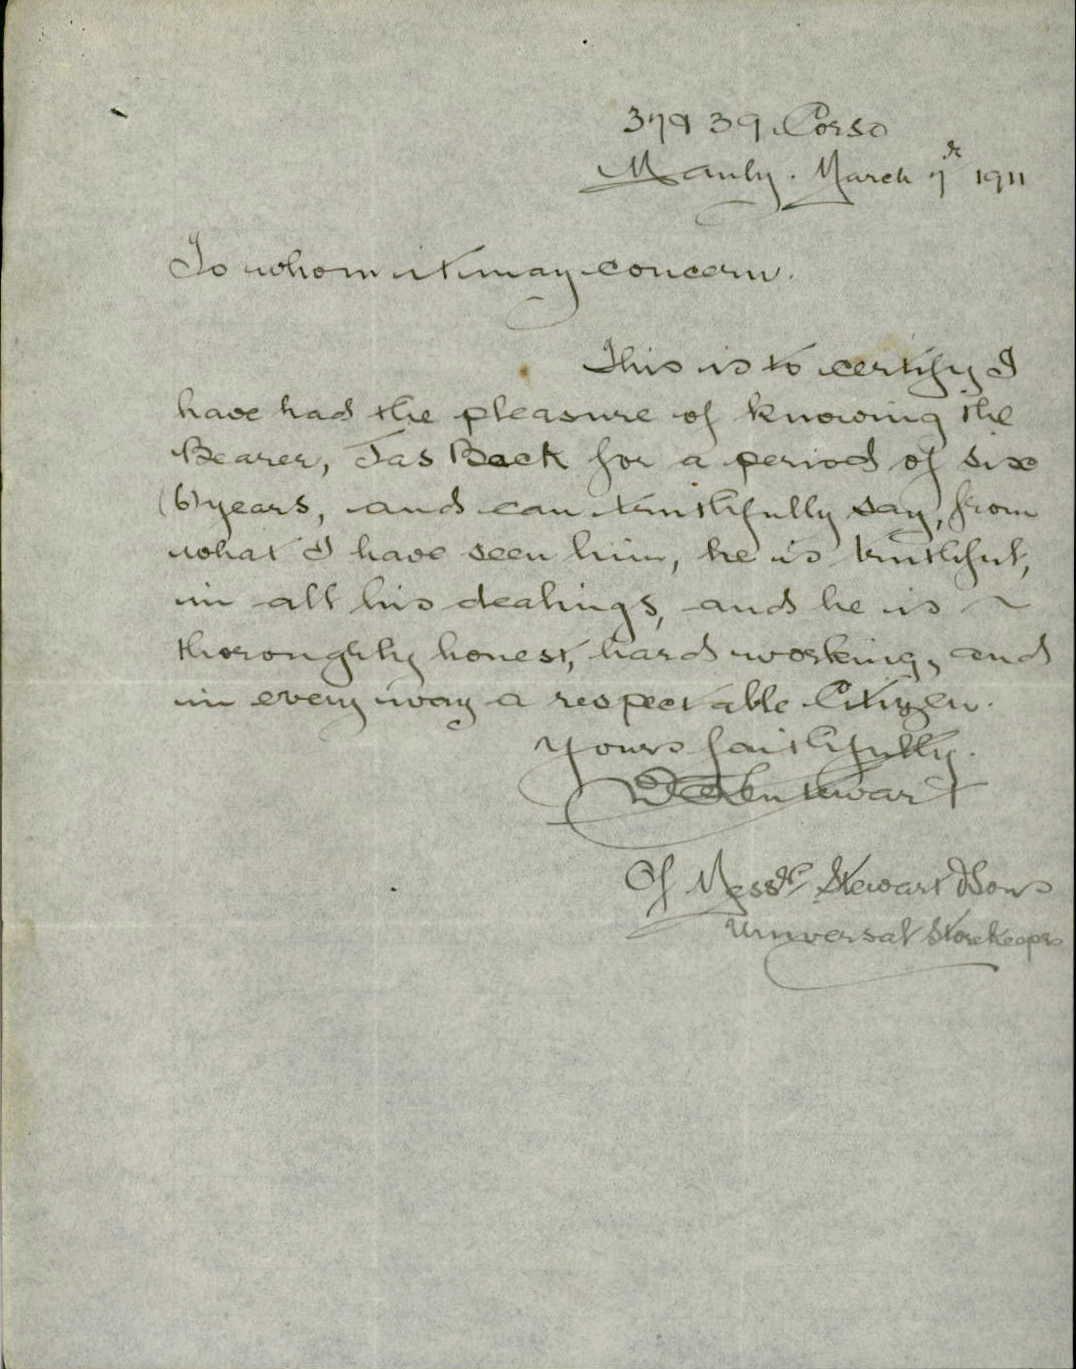 37 & 39 Corso
Manly. March 7th 1911
To whom it may concern.
This is to certify I
have had the pleasure of knowing the
Bearer, Jas Back for a period of six
(6) years, and can truthfully say, from
what I have seen him, he is truthful,
in all his dealings, and he is ~
thoroughly honest, hard working, and
in every way a respectable Citizen.
Yours faithfully.
Stewart
Of Messrs Stewart & Sons
Universal Storekeepers